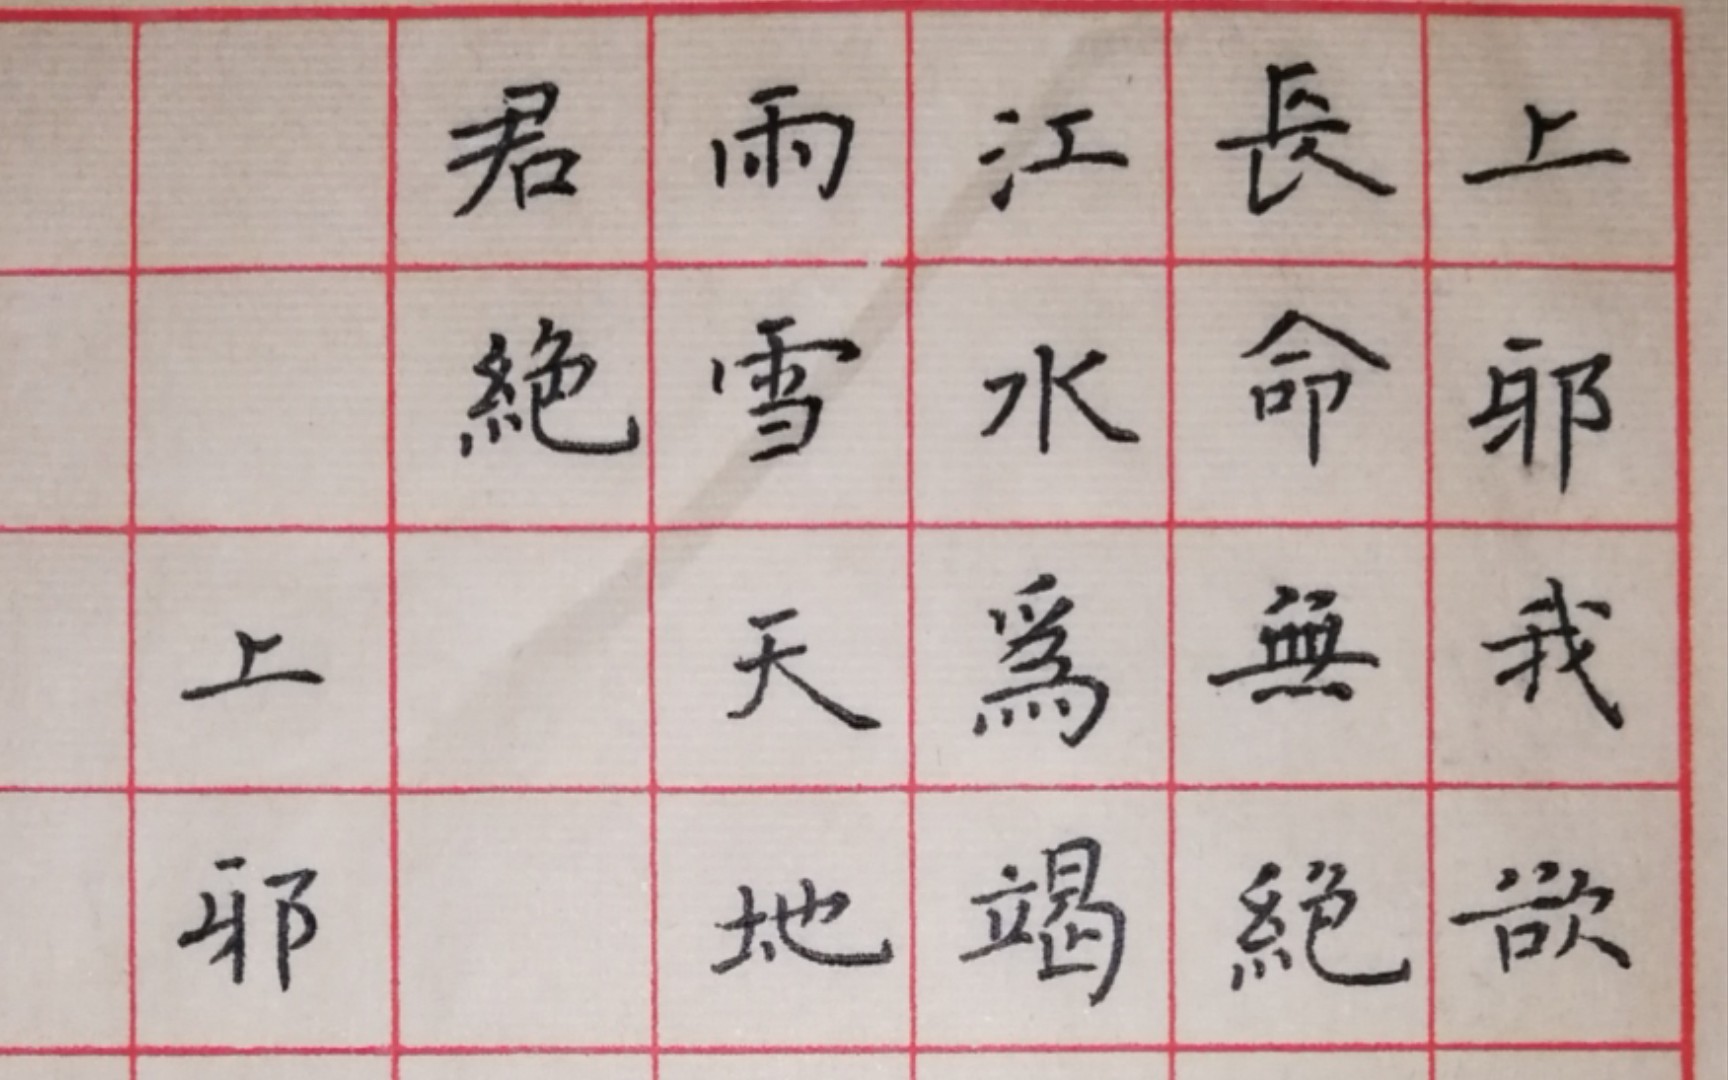 上邪我欲
長命無絕
江水爲竭
雨雪天地
君絕
上邪